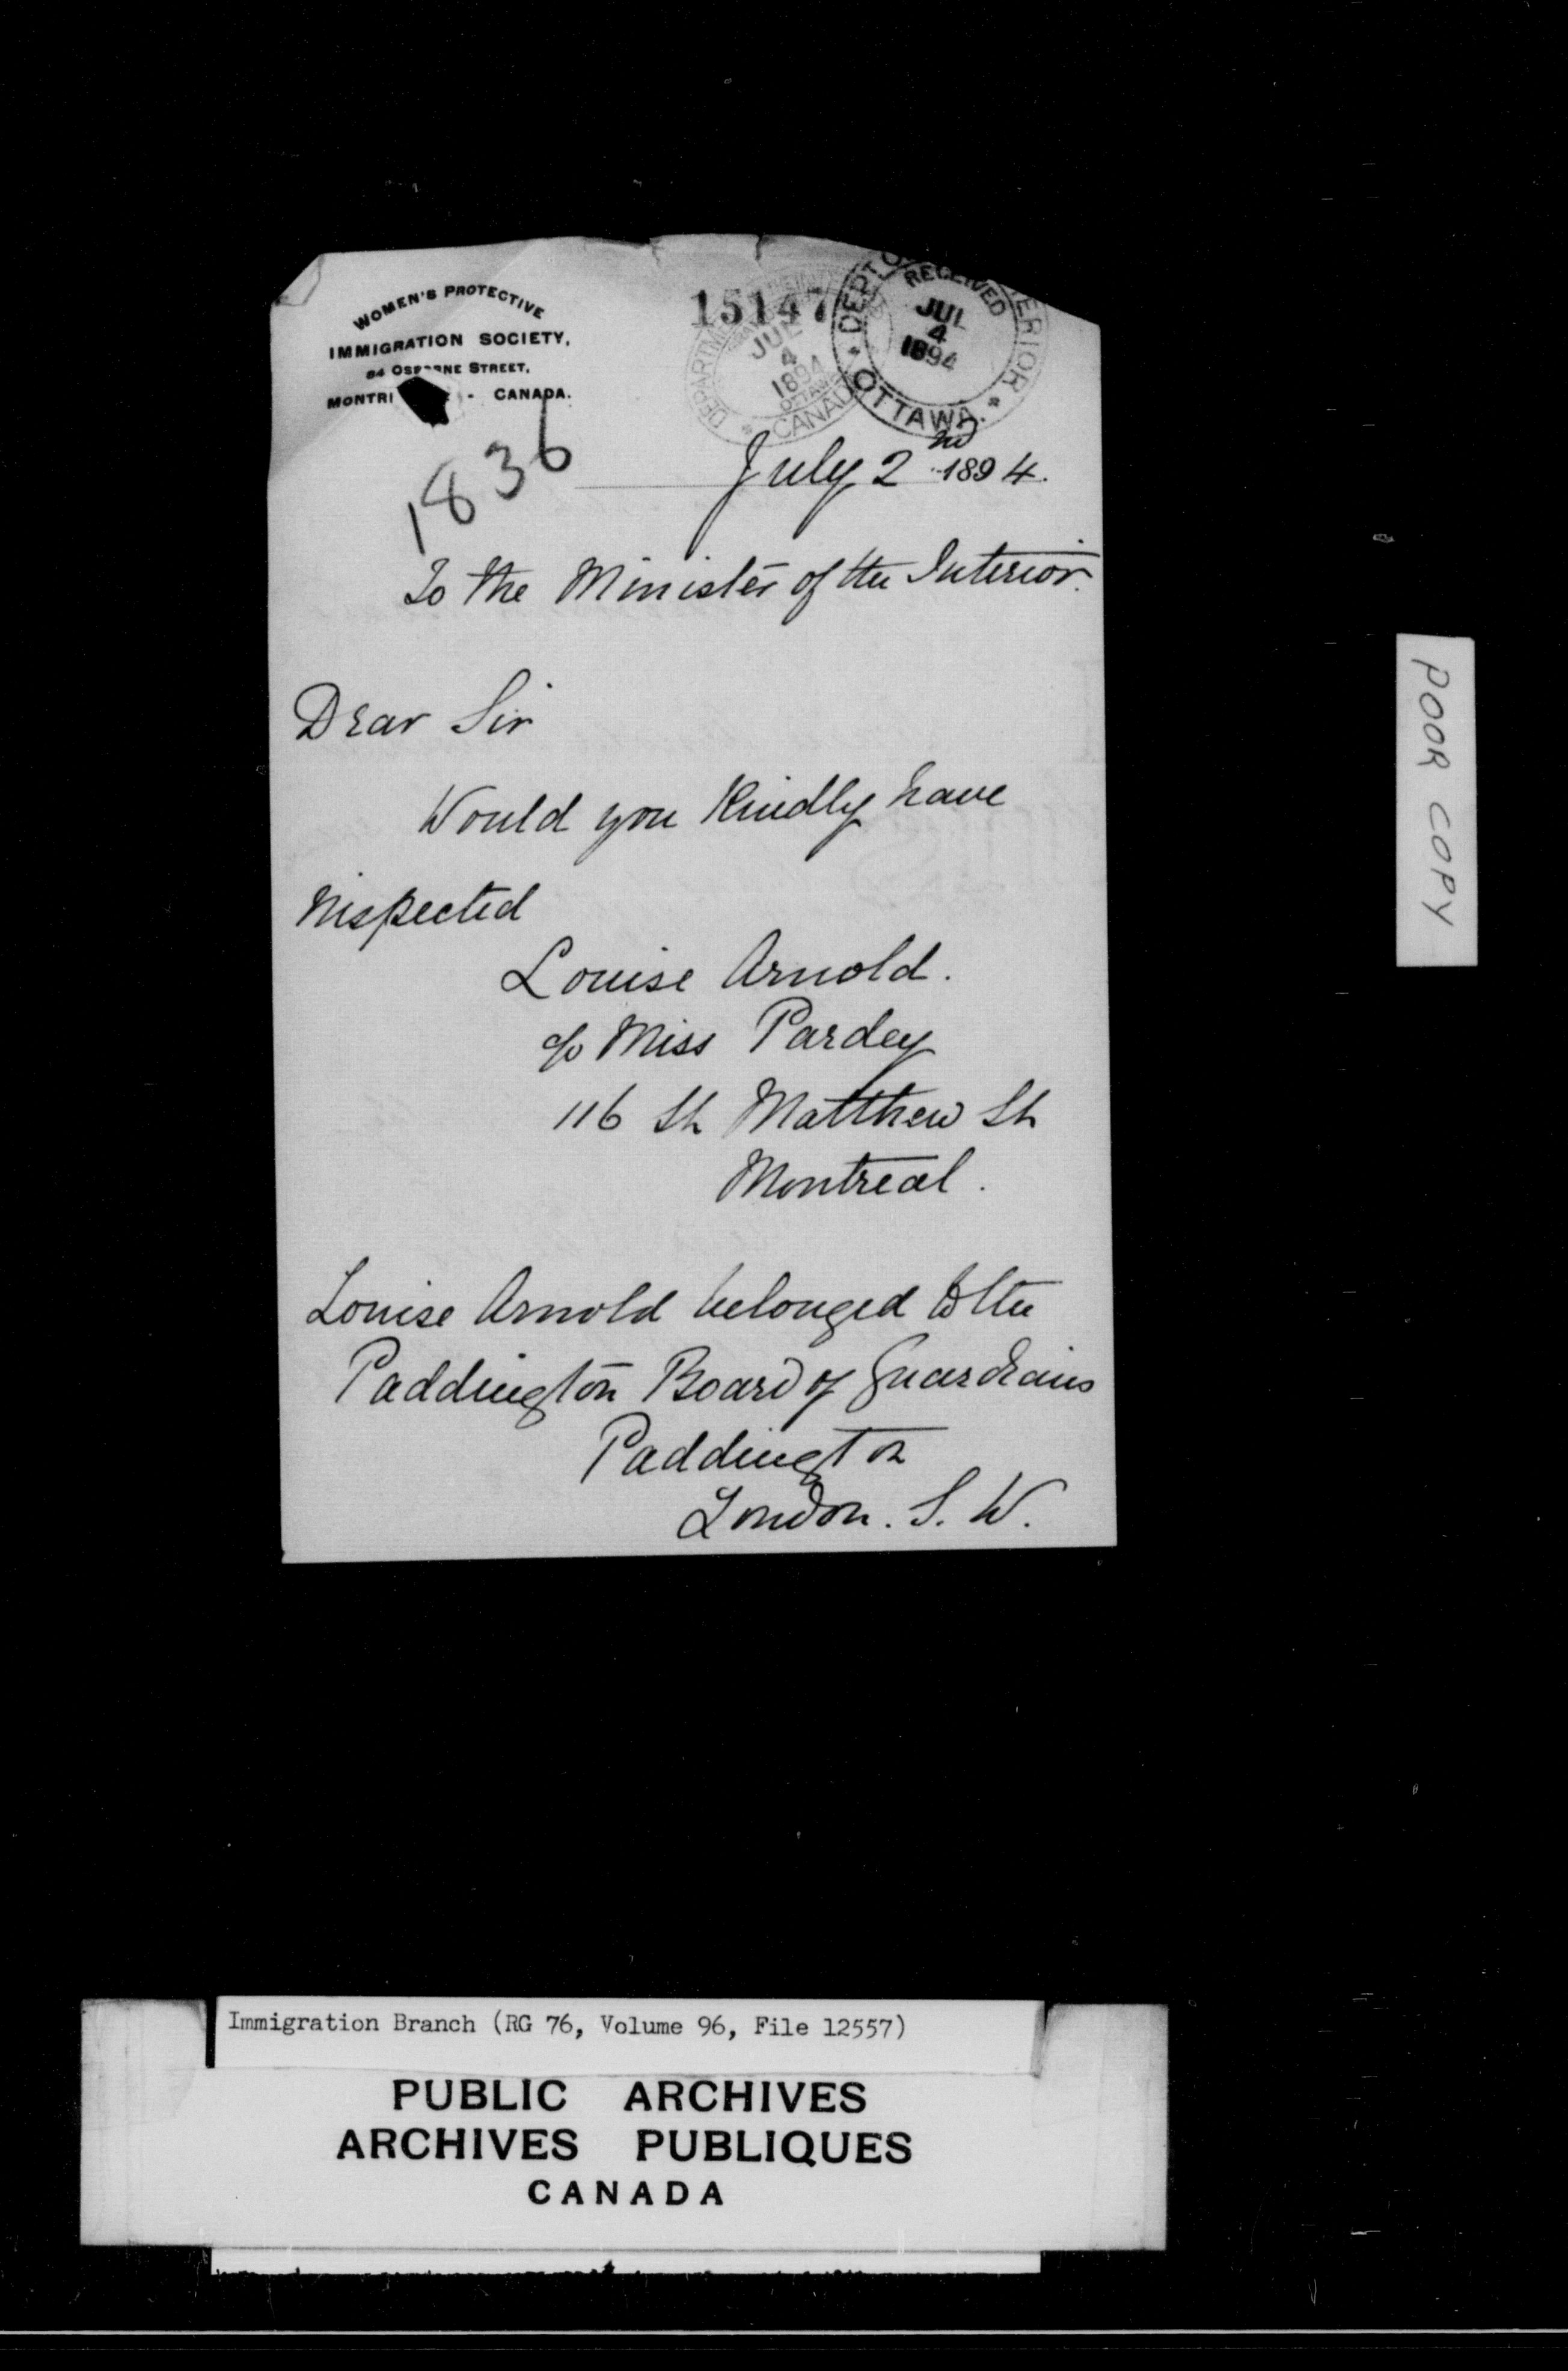 WOMEN'S PROTECTIVE
IMMIGRATION SOCIETY,
84 OSBORNE STREET,
MONTRI - CANADA.
15147
DEPARTMENT
JUL
4
1894
OTTAWA
CANADA
DEPT OF INTERIOR
RECEIVED
JUL
4
1894
OTTAWA.
1836
July 2nd 1894.
To the Minister of the Interior.
Dear Sir
Would you Kindly have
inspected
Louise Arnold.
c/o Miss Pardey
116 St Matthew St
Montreal.
Louise Arnold belonged to the
Paddington Board of Guardians
Paddington
London. S. W.
POOR COPY
Immigration Branch (RG 76, Volume 96, File 12557)
PUBLIC ARCHIVES
ARCHIVES PUBLIQUES
CANADA